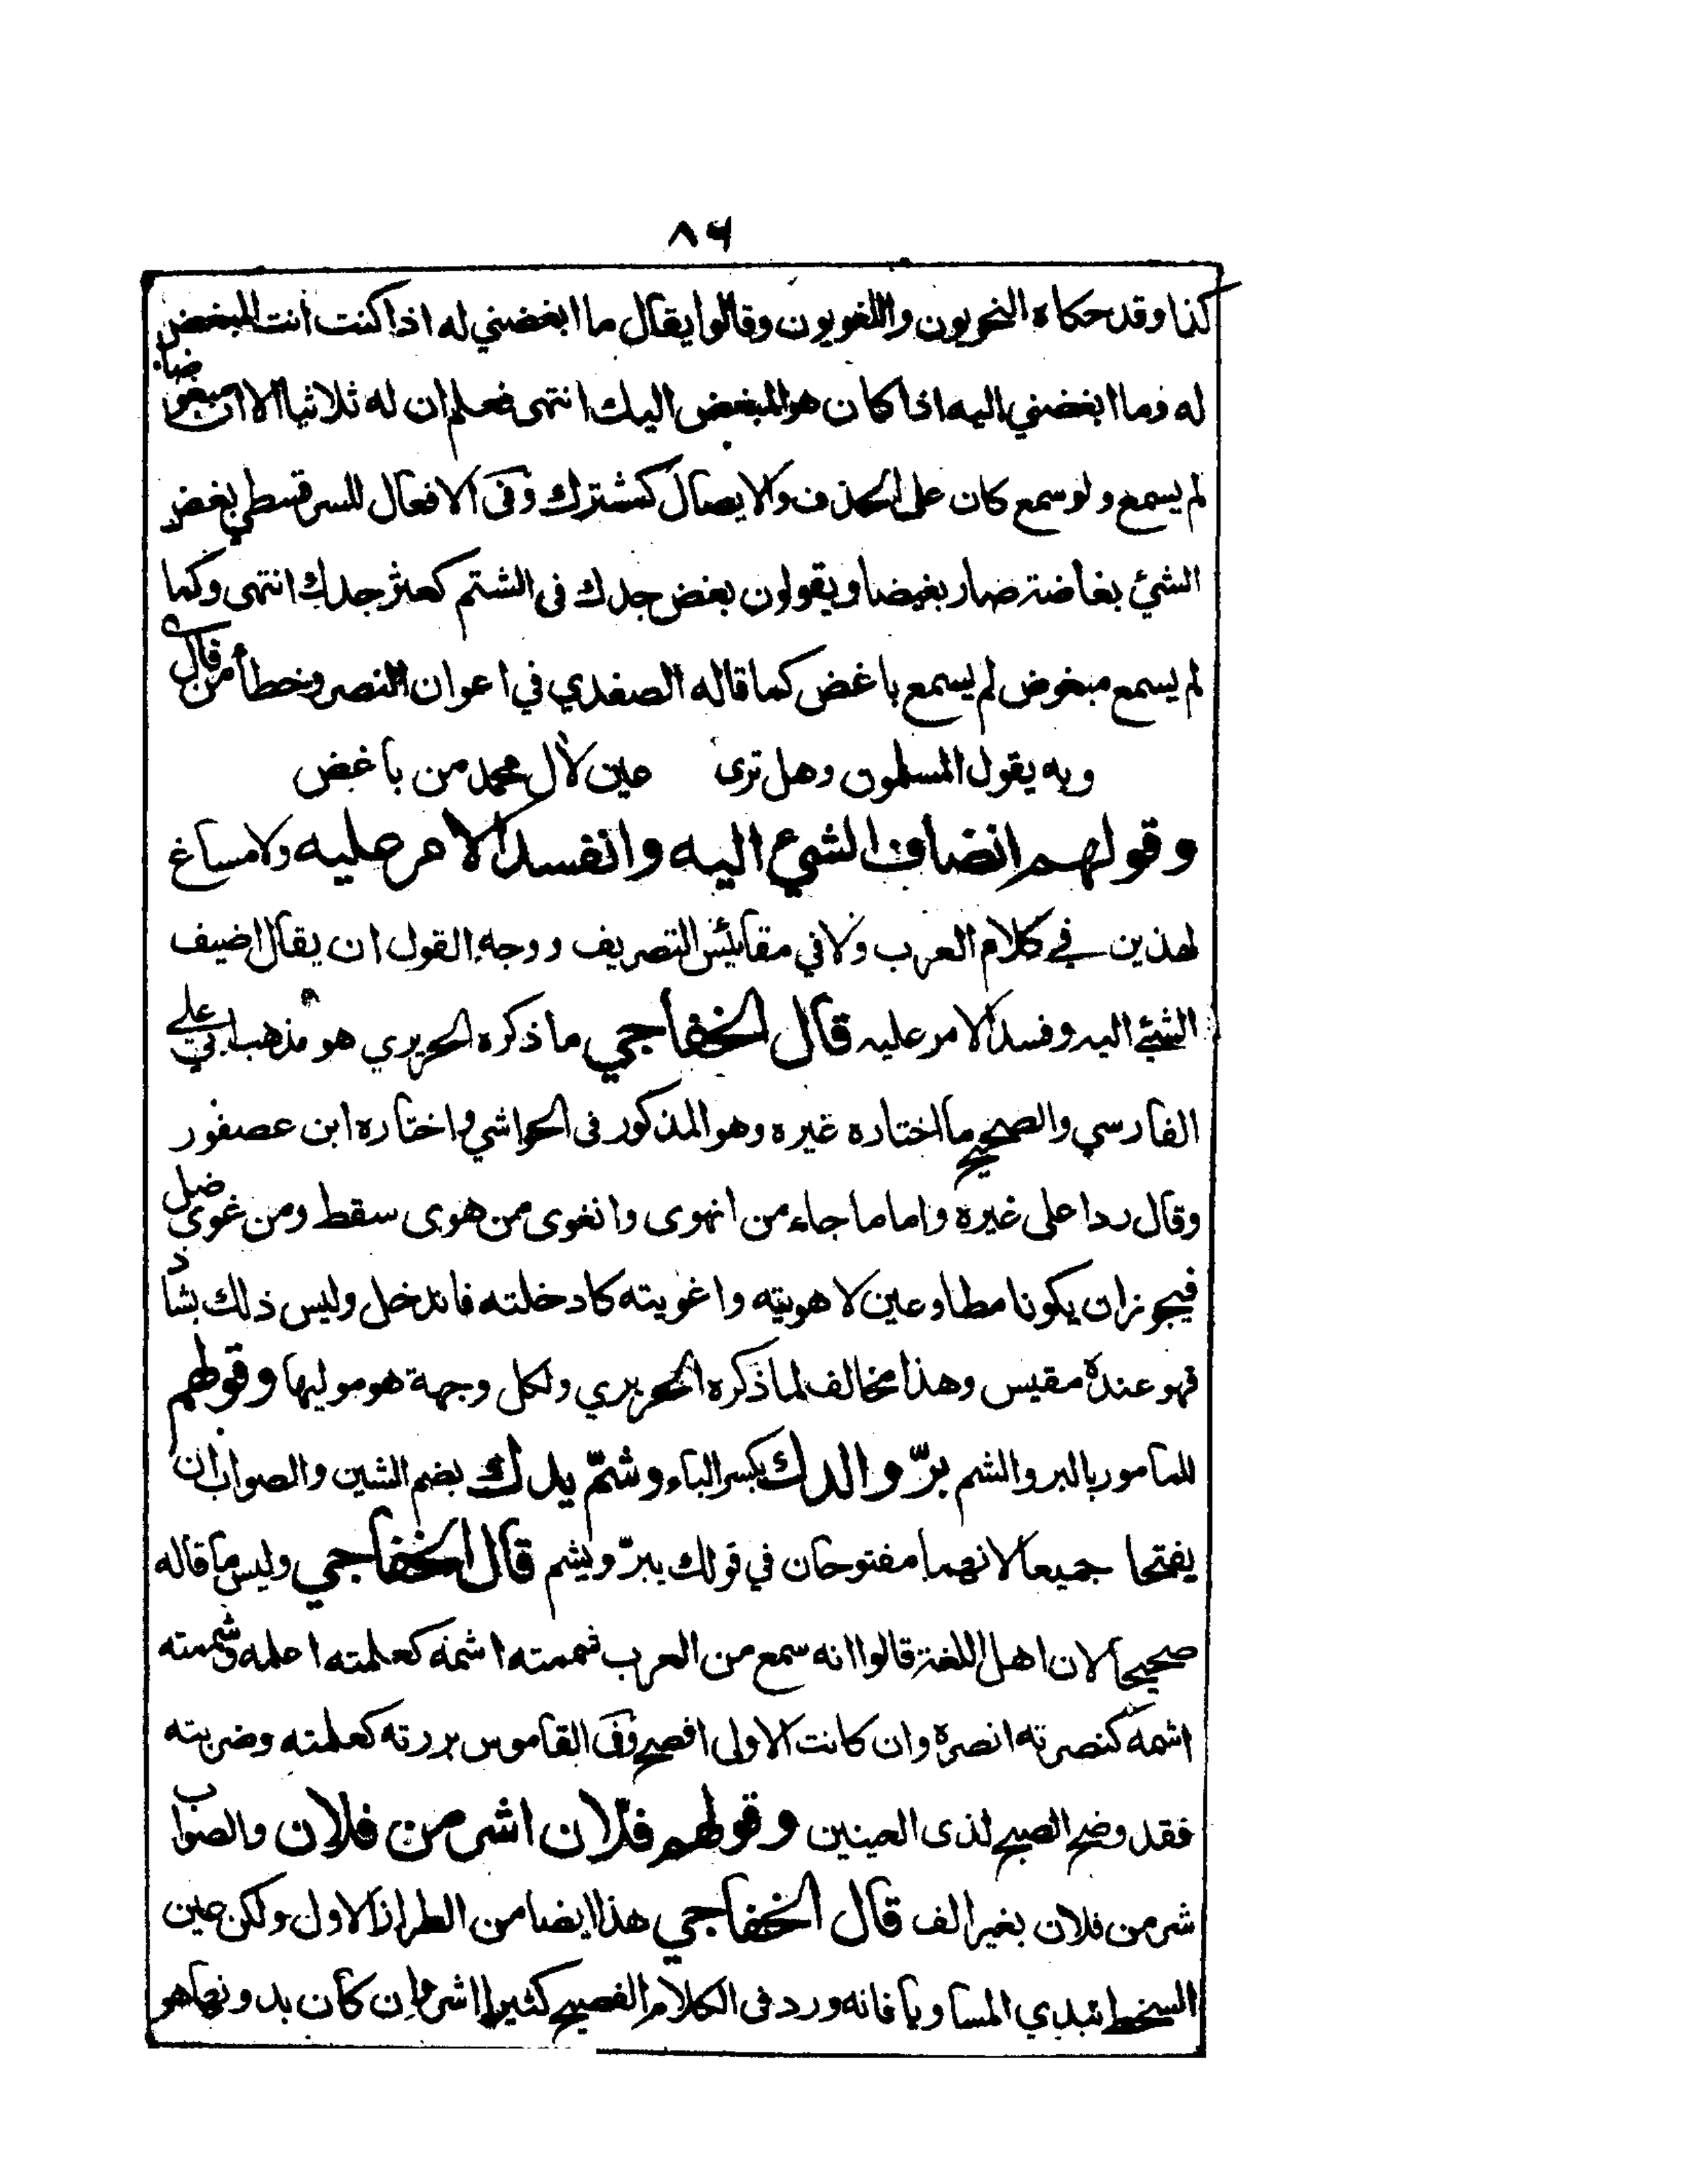 ٨٦
كذا وقد حكاه النحويون واللغويون وقالوا يقال ما ابغضني له اذا كنت انت المبغض
له وما ابغضني اليه اذا كان هو المبغض اليك انتهى فعلم ان له ثلاثيا الا ان مبغوضا
لم يسمع ولو سمع كان على الحذف والايصال كمشترك وفى الافعال للسرقسطي بغض
الشئ بغاضة صار بغيضا ويقولون بغض جدك فى الشتم كعثر جدك انتهى وكما
لم يسمع مبغوض لم يسمع باغض كما قاله الصفدي في اعوان النصر وخطأ من قال
وبه يقول المسلمون وهل ترى عين لآل محمد من باغض
وقولهم انضاف الشئ اليه وانفسد الامر عليه ولا مساغ
لهذين في كلام العرب ولا في مقائيس التصريف ووجه القول ان يقال اضيف
الشئ اليه وفسد الامر عليه قال الخفاجي ما ذكره الحريري هو مذهب ابي علي
الفارسي والصحيح ما اختاره غيره وهو المذكور فى الحواشي واختاره ابن عصفور
وقال ردا على غيره واما ما جاء من انهوى وانغوى من هوى سقط ومن غوى ضل
فيجوز ان يكونا مطاوعين لاهويته واغويته كادخلته فاندخل وليس ذلك بشاذ
فهو عنده مقيس وهذا مخالف لما ذكره الحريري ولكل وجهة هو موليها وقولهم
للمامور بالبر والشم برّ والدك بكسر الباء وشمّ يدك بضم الشين والصواب ان
يفتحا جميعا لانهما مفتوحان في قولك يبرّ ويشم قال الخفاجي وليس ما قاله
صحيحا لان اهل اللغة قالوا انه سمع من العرب شممته اشمه كعلمته اعلمه وشممته
اشمه كنصرته انصره وان كانت الاولى افصح وفى القاموس بررته كعلمته وضربته
فقد وضح الصبح لذى العينين وقولهم فلان اشر من فلان والصواب
شر من فلان بغير الف قال الخفاجي هذا ايضا من الطراز الاول ولكن عين
السخط تبدي المساويا فانه ورد فى الكلام الفصيح كثيرا اشر وان كان بدونها هو